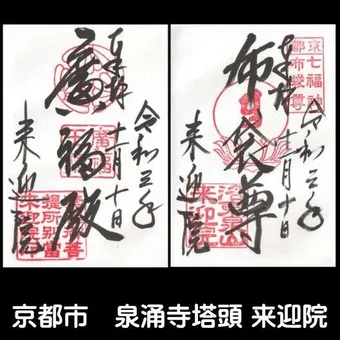 奉拝
廣福殿
令和三年
十一月十日
来迎院
奉拝
布袋尊
令和三年
十一月十日
来迎院
京都七福神
布袋尊
京都市 泉涌寺塔頭 来迎院